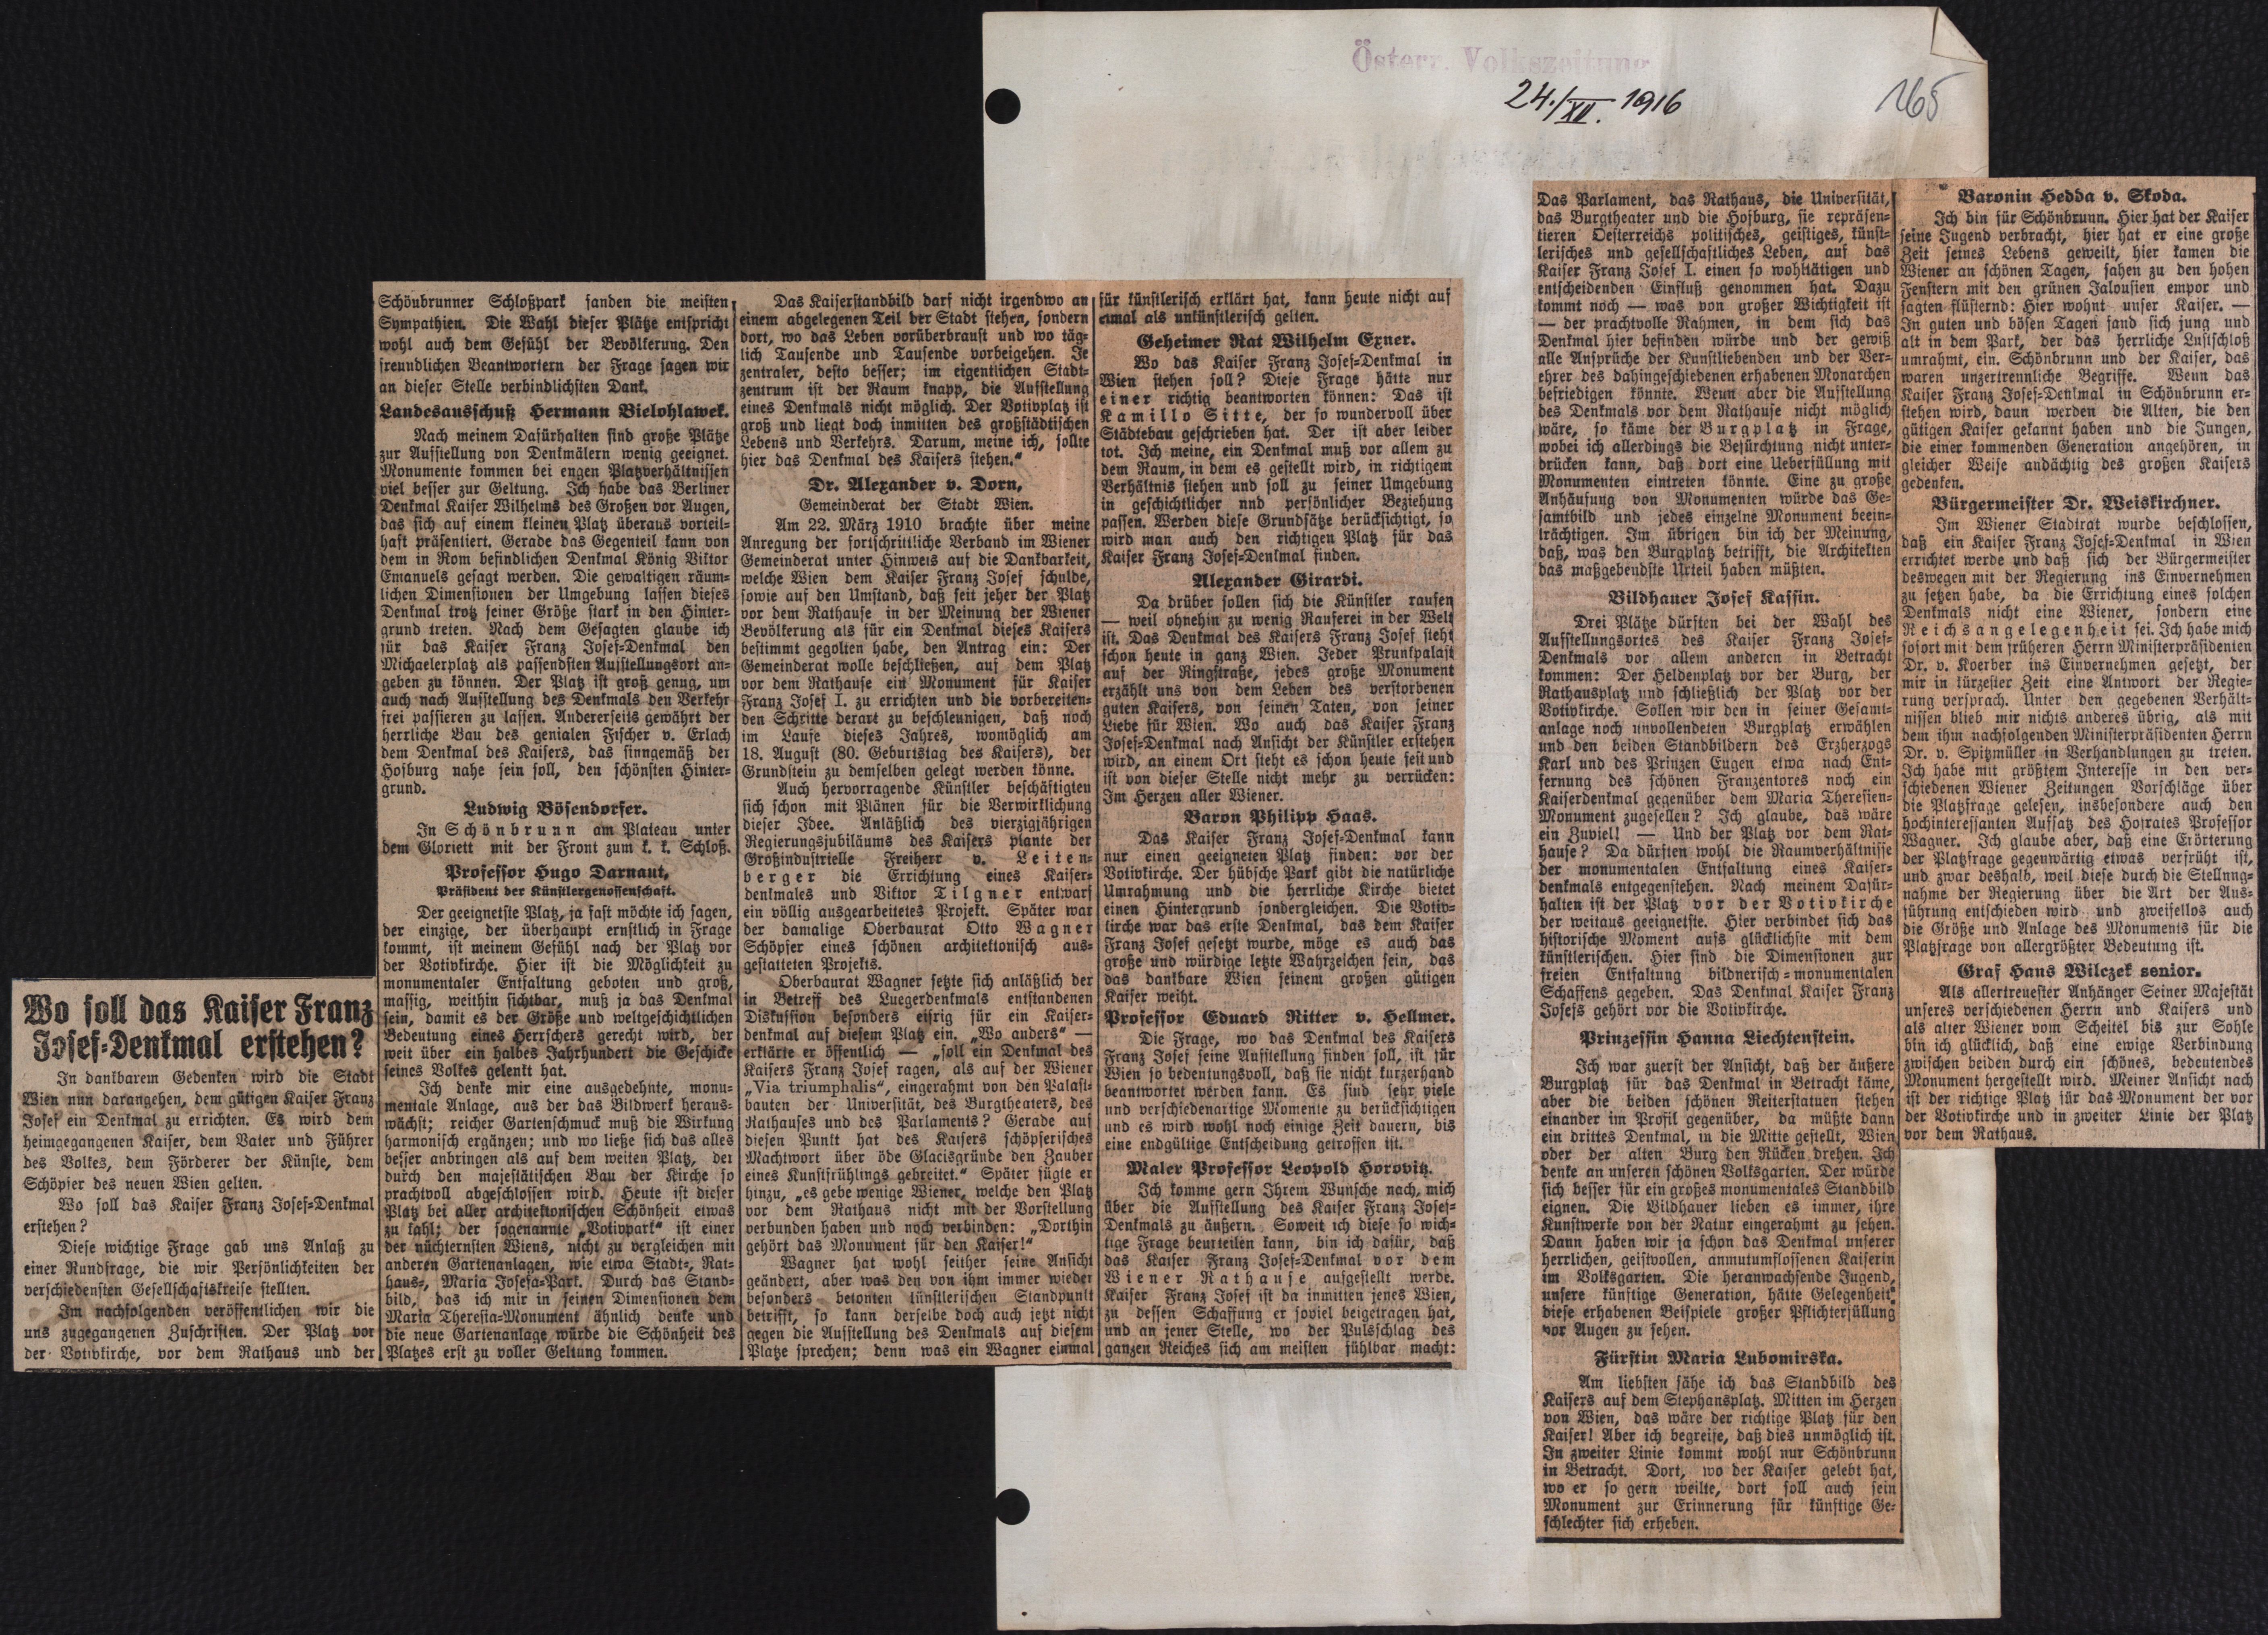 Österr. Volkszeitung
24./XII. 1916
165
Wo soll das Kaiser Franz
Josef-Denkmal erstehen?
In dankbarem Gedenken wird die Stadt
Wien nun darangehen, dem gütigen Kaiser Franz
Josef ein Denkmal zu errichten. Es wird dem
heimgegangenen Kaiser, dem Vater und Führer
des Volkes, dem Förderer der Künste, dem
Schöpfer des neuen Wien gelten.
Wo soll das Kaiser Franz Josef-Denkmal
erstehen?
Diese wichtige Frage gab uns Anlaß zu
einer Rundfrage, die wir Persönlichkeiten der
verschiedensten Gesellschaftskreise stellten.
Im nachfolgenden veröffentlichen wir die
uns zugegangenen Zuschriften. Der Platz vor
der Votivkirche, vor dem Rathaus und der
Schönbrunner Schloßpark fanden die meisten
Sympathien. Die Wahl dieser Plätze entspricht
wohl auch dem Gefühl der Bevölkerung. Den
freundlichen Beantwortern der Frage sagen wir
an dieser Stelle verbindlichsten Dank.
Landesausschuß Hermann Bielohlawek.
Nach meinem Dafürhalten sind große Plätze
zur Aufstellung von Denkmälern wenig geeignet.
Monumente kommen bei engen Platzverhältnissen
viel besser zur Geltung. Ich habe das Berliner
Denkmal Kaiser Wilhelms des Großen vor Augen,
das sich auf einem kleinen Platz überaus vorteil-
haft präsentiert. Gerade das Gegenteil kann von
dem in Rom befindlichen Denkmal König Viktor
Emanuels gesagt werden. Die gewaltigen räum-
lichen Dimensionen der Umgebung lassen dieses
Denkmal trotz seiner Größe stark in den Hinter-
grund treten. Nach dem Gesagten glaube ich
für das Kaiser Franz Josef-Denkmal den
Michaelerplatz als passendsten Aufstellungsort an-
geben zu können. Der Platz ist groß genug, um
auch nach Aufstellung des Denkmals den Verkehr
frei passieren zu lassen. Andererseits gewährt der
herrliche Bau des genialen Fischer v. Erlach
dem Denkmal des Kaisers, das sinngemäß der
Hofburg nahe sein soll, den schönsten Hinter-
grund.
Ludwig Bösendorfer.
In Schönbrunn am Plateau unter
dem Gloriett mit der Front zum k. k. Schloß.
Professor Hugo Darnaut,
Präsident der Künstlergenossenschaft.
Der geeignetste Platz, ja fast möchte ich sagen,
der einzige, der überhaupt ernstlich in Frage
kommt, ist meinem Gefühl nach der Platz vor
der Votivkirche. Hier ist die Möglichkeit zu
monumentaler Entfaltung geboten und groß,
massig, weithin sichtbar, muß ja das Denkmal
sein, damit es der Größe und weltgeschichtlichen
Bedeutung eines Herrschers gerecht wird, der
weit über ein halbes Jahrhundert die Geschicke
seines Volkes gelenkt hat.
Ich denke mir eine ausgedehnte, monu-
mentale Anlage, aus der das Bildwerk heraus-
wächst; reicher Gartenschmuck muß die Wirkung
harmonisch ergänzen; und wo ließe sich das alles
besser anbringen als auf dem weiten Platz, der
durch den majestätischen Bau der Kirche so
prachtvoll abgeschlossen wird. Heute ist dieser
Platz bei aller architektonischen Schönheit etwas
zu kahl; der sogenannte „Votivpark“ ist einer
der nüchternsten Wiens, nicht zu vergleichen mit
anderen Gartenanlagen, wie etwa Stadt-, Rat-
haus-, Maria Josefa-Park. Durch das Stand-
bild, das ich mir in seinen Dimensionen dem
Maria Theresia-Monument ähnlich denke und
die neue Gartenanlage würde die Schönheit des
Platzes erst zu voller Geltung kommen.
Das Kaiserstandbild darf nicht irgendwo an
einem abgelegenen Teil der Stadt stehen, sondern
dort, wo das Leben vorüberbraust und wo täg-
lich Tausende und Tausende vorbeigehen. Je
zentraler, desto besser; im eigentlichen Stadt-
zentrum ist der Raum knapp, die Aufstellung
eines Denkmals nicht möglich. Der Votivplatz ist
groß und liegt doch inmitten des großstädtischen
Lebens und Verkehrs. Darum, meine ich, sollte
hier das Denkmal des Kaisers stehen.“
Dr. Alexander v. Dorn,
Gemeinderat der Stadt Wien.
Am 22. März 1910 brachte über meine
Anregung der fortschrittliche Verband im Wiener
Gemeinderat unter Hinweis auf die Dankbarkeit,
welche Wien dem Kaiser Franz Josef schulde,
sowie auf den Umstand, daß seit jeher der Platz
vor dem Rathause in der Meinung der Wiener
Bevölkerung als für ein Denkmal dieses Kaisers
bestimmt gegolten habe, den Antrag ein: Der
Gemeinderat wolle beschließen, auf dem Platz
vor dem Rathause ein Monument für Kaiser
Franz Josef I. zu errichten und die vorbereiten-
den Schritte derart zu beschleunigen, daß noch
im Laufe dieses Jahres, womöglich am
18. August (80. Geburtstag des Kaisers), der
Grundstein zu demselben gelegt werden könne.
Auch hervorragende Künstler beschäftigten
sich schon mit Plänen für die Verwirklichung
dieser Idee. Anläßlich des vierzigjährigen
Regierungsjubiläums des Kaisers plante der
Großindustrielle Freiherr v. Leiten-
berger die Errichtung eines Kaiser-
denkmales und Viktor Tilgner entwarf
ein völlig ausgearbeitetes Projekt. Später war
der damalige Oberbaurat Otto Wagner
Schöpfer eines schönen architektonisch aus-
gestatteten Projekts.
Oberbaurat Wagner setzte sich anläßlich der
in Betreff des Luegerdenkmals entstandenen
Diskussion besonders eifrig für ein Kaiser-
denkmal auf diesem Platz ein. „Wo anders“ —
erklärte er öffentlich — „soll ein Denkmal des
Kaisers Franz Josef ragen, als auf der Wiener
„Via triumphalis“, eingerahmt von den Palast-
bauten der Universität, des Burgtheaters, des
Rathauses und des Parlaments? Gerade auf
diesen Punkt hat des Kaisers schöpferisches
Machtwort über öde Glacisgründe den Zauber
eines Kunstfrühlings gebreitet.“ Später fügte er
hinzu, „es gebe wenige Wiener, welche den Platz
vor dem Rathaus nicht mit der Vorstellung
verbunden haben und noch verbinden: „Dorthin
gehört das Monument für den Kaiser!“
Wagner hat wohl seither seine Ansicht
geändert, aber was den von ihm immer wieder
besonders betonten künstlerischen Standpunkt
betrifft, so kann derselbe doch auch jetzt nicht
gegen die Aufstellung des Denkmals auf diesem
Platze sprechen; denn was ein Wagner einmal
für künstlerisch erklärt hat, kann heute nicht auf
einmal als unkünstlerisch gelten.
Geheimer Rat Wilhelm Exner.
Wo das Kaiser Franz Josef-Denkmal in
Wien stehen soll? Diese Frage hätte nur
einer richtig beantworten können: Das ist
Kamillo Sitte, der so wundervoll über
Städtebau geschrieben hat. Der ist aber leider
tot. Ich meine, ein Denkmal muß vor allem zu
dem Raum, in dem es gestellt wird, in richtigem
Verhältnis stehen und soll zu seiner Umgebung
in geschichtlicher und persönlicher Beziehung
passen. Werden diese Grundsätze berücksichtigt, so
wird man auch den richtigen Platz für das
Kaiser Franz Josef-Denkmal finden.
Alexander Girardi.
Da drüber sollen sich die Künstler raufen
— weil ohnehin zu wenig Rauferei in der Welt
ist. Das Denkmal des Kaisers Franz Josef steht
schon heute in ganz Wien. Jeder Prunkpalast
auf der Ringstraße, jedes große Monument
erzählt uns von dem Leben des verstorbenen
guten Kaisers, von seinen Taten, von seiner
Liebe für Wien. Wo auch das Kaiser Franz
Josef-Denkmal nach Ansicht der Künstler erstehen
wird, an einem Ort steht es schon heute fest und
ist von dieser Stelle nicht mehr zu verrücken:
Im Herzen aller Wiener.
Baron Philipp Haas.
Das Kaiser Franz Josef-Denkmal kann
nur einen geeigneten Platz finden: vor der
Votivkirche. Der hübsche Park gibt die natürliche
Umrahmung und die herrliche Kirche bietet
einen Hintergrund sondergleichen. Die Votiv-
kirche war das erste Denkmal, das dem Kaiser
Franz Josef gesetzt wurde, möge es auch das
große und würdige letzte Wahrzeichen sein, das
das dankbare Wien seinem großen gütigen
Kaiser weiht.
Professor Eduard Ritter v. Hellmer.
Die Frage, wo das Denkmal des Kaisers
Franz Josef seine Aufstellung finden soll, ist für
Wien so bedeutungsvoll, daß sie nicht kurzerhand
beantwortet werden kann. Es sind sehr viele
und verschiedenartige Momente zu berücksichtigen
und es wird wohl noch einige Zeit dauern, bis
eine endgültige Entscheidung getroffen ist.
Maler Professor Leopold Horovitz.
Ich komme gern Ihrem Wunsche nach, mich
über die Aufstellung des Kaiser Franz Josef-
Denkmals zu äußern. Soweit ich diese so wich-
tige Frage beurteilen kann, bin ich dafür, daß
das Kaiser Franz Josef-Denkmal vor dem
Wiener Rathause aufgestellt werde.
Kaiser Franz Josef ist da inmitten jenes Wien,
zu dessen Schaffung er soviel beigetragen hat,
und an jener Stelle, wo der Pulsschlag des
ganzen Reiches sich am meisten fühlbar macht:
Das Parlament, das Rathaus, die Universität,
das Burgtheater und die Hofburg, sie repräsen-
tieren Oesterreichs politisches, geistiges, künst-
lerisches und gesellschaftliches Leben, auf das
Kaiser Franz Josef I. einen so wohltätigen und
entscheidenden Einfluß genommen hat. Dazu
kommt noch — was von großer Wichtigkeit ist
— der prachtvolle Rahmen, in dem sich das
Denkmal hier befinden würde und der gewiß
alle Ansprüche der Kunstliebenden und der Ver-
ehrer des dahingeschiedenen erhabenen Monarchen
befriedigen könnte. Wenn aber die Aufstellung
des Denkmals vor dem Rathause nicht möglich
wäre, so käme der Burgplatz in Frage,
wobei ich allerdings die Befürchtung nicht unter-
drücken kann, daß dort eine Ueberfüllung mit
Monumenten eintreten könnte. Eine zu große
Anhäufung von Monumenten würde das Ge-
samtbild und jedes einzelne Monument beein-
trächtigen. Im übrigen bin ich der Meinung,
daß, was den Burgplatz betrifft, die Architekten
das maßgebendste Urteil haben müßten.
Bildhauer Josef Kassin.
Drei Plätze dürften bei der Wahl des
Aufstellungsortes des Kaiser Franz Josef-
Denkmals vor allem anderen in Betracht
kommen: Der Heldenplatz vor der Burg, der
Rathausplatz und schließlich der Platz vor der
Votivkirche. Sollen wir den in seiner Gesamt-
anlage noch unvollendeten Burgplatz erwählen
und den beiden Standbildern des Erzherzogs
Karl und des Prinzen Eugen etwa nach Ent-
fernung des schönen Franzentores noch ein
Kaiserdenkmal gegenüber dem Maria Theresien-
Monument zugesellen? Ich glaube, das wäre
ein Zuviel! — Und der Platz vor dem Rat-
hause? Da dürften wohl die Raumverhältnisse
der monumentalen Entfaltung eines Kaiser-
denkmals entgegenstehen. Nach meinem Dafür-
halten ist der Platz vor der Votivkirche
der weitaus geeignetste. Hier verbindet sich das
historische Moment aufs glücklichste mit dem
künstlerischen. Hier sind die Dimensionen zur
freien Entfaltung bildnerisch-monumentalen
Schaffens gegeben. Das Denkmal Kaiser Franz
Josefs gehört vor die Votivkirche.
Prinzessin Hanna Liechtenstein.
Ich war zuerst der Ansicht, daß der äußere
Burgplatz für das Denkmal in Betracht käme,
aber die beiden schönen Reiterstatuen stehen
einander im Profil gegenüber, da müßte dann
ein drittes Denkmal, in die Mitte gestellt, Wien
oder der alten Burg den Rücken drehen. Ich
denke an unseren schönen Volksgarten. Der würde
sich besser für ein großes monumentales Standbild
eignen. Die Bildhauer lieben es immer, ihre
Kunstwerke von der Natur eingerahmt zu sehen.
Dann haben wir ja schon das Denkmal unserer
herrlichen, geistvollen, anmutumflossenen Kaiserin
im Volksgarten. Die heranwachsende Jugend,
unsere künftige Generation, hätte Gelegenheit,
diese erhabenen Beispiele großer Pflichterfüllung
vor Augen zu sehen.
Fürstin Maria Lubomirska.
Am liebsten sähe ich das Standbild des
Kaisers auf dem Stephansplatz. Mitten im Herzen
von Wien, das wäre der richtige Platz für den
Kaiser! Aber ich begreife, daß dies unmöglich ist.
In zweiter Linie kommt wohl nur Schönbrunn
in Betracht. Dort, wo der Kaiser gelebt hat,
wo er so gern weilte, dort soll auch sein
Monument zur Erinnerung für künftige Ge-
schlechter sich erheben.
Baronin Hedda v. Skoda.
Ich bin für Schönbrunn. Hier hat der Kaiser
seine Jugend verbracht, hier hat er eine große
Zeit seines Lebens geweilt, hier kamen die
Wiener an schönen Tagen, sahen zu den hohen
Fenstern mit den grünen Jalousien empor und
sagten flüsternd: Hier wohnt unser Kaiser. —
In guten und bösen Tagen fand sich jung und
alt in dem Park, der das herrliche Lustschloß
umrahmt, ein. Schönbrunn und der Kaiser, das
waren unzertrennliche Begriffe. Wenn das
Kaiser Franz Josef-Denkmal in Schönbrunn er-
stehen wird, dann werden die Alten, die den
gütigen Kaiser gekannt haben und die Jungen,
die einer kommenden Generation angehören, in
gleicher Weise andächtig des großen Kaisers
gedenken.
Bürgermeister Dr. Weiskirchner.
Im Wiener Stadtrat wurde beschlossen,
daß ein Kaiser Franz Josef-Denkmal in Wien
errichtet werde und daß sich der Bürgermeister
deswegen mit der Regierung ins Einvernehmen
zu setzen habe, da die Errichtung eines solchen
Denkmals nicht eine Wiener, sondern eine
Reichsangelegenheit sei. Ich habe mich
sofort mit dem früheren Herrn Ministerpräsidenten
Dr. v. Koerber ins Einvernehmen gesetzt, der
mir in kürzester Zeit eine Antwort der Regie-
rung versprach. Unter den gegebenen Verhält-
nissen blieb mir nichts anderes übrig, als mit
dem ihm nachfolgenden Ministerpräsidenten Herrn
Dr. v. Spitzmüller in Verhandlungen zu treten.
Ich habe mit größtem Interesse in den ver-
schiedenen Wiener Zeitungen Vorschläge über
die Platzfrage gelesen, insbesondere auch den
hochinteressanten Aufsatz des Hofrates Professor
Wagner. Ich glaube aber, daß eine Erörterung
der Platzfrage gegenwärtig etwas verfrüht ist,
und zwar deshalb, weil diese durch die Stellung-
nahme der Regierung über die Art der Aus-
führung entschieden wird und zweifellos auch
die Größe und Anlage des Monuments für die
Platzfrage von allergrößter Bedeutung ist.
Graf Hans Wilczek senior.
Als allertreuester Anhänger Seiner Majestät
unseres verschiedenen Herrn und Kaisers und
als alter Wiener vom Scheitel bis zur Sohle
bin ich glücklich, daß eine ewige Verbindung
zwischen beiden durch ein schönes, bedeutendes
Monument hergestellt wird. Meiner Ansicht nach
ist der richtige Platz für das Monument der vor
der Votivkirche und in zweiter Linie der Platz
vor dem Rathaus.